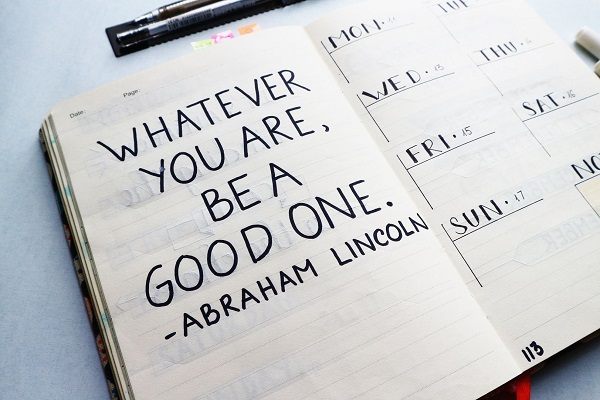 Date:
Page:
WHATEVER
YOU ARE,
BE A
GOOD ONE.
-ABRAHAM LINCOLN
MON. 11
TUE.
WED. 13
THU. 14
FRI. 15
SAT. 16
SUN. 17
NO
113